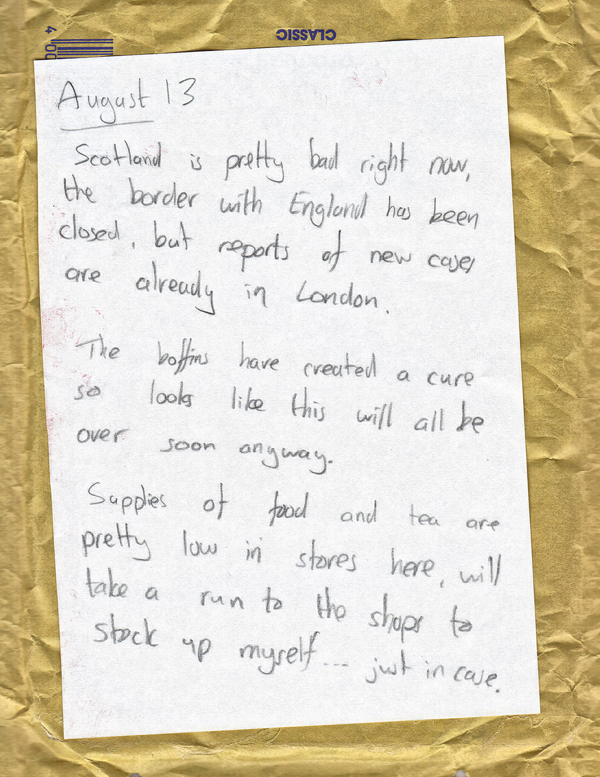 4 00
CLASSIC
August 13
Scotland is pretty bad right now,
the border with England has been
closed, but reports of new cases
are already in London.
The boffins have created a cure
so looks like this will all be
over soon anyway.
Supplies of food and tea are
pretty low in stores here, will
take a run to the shops to
stock up myself... just in case.